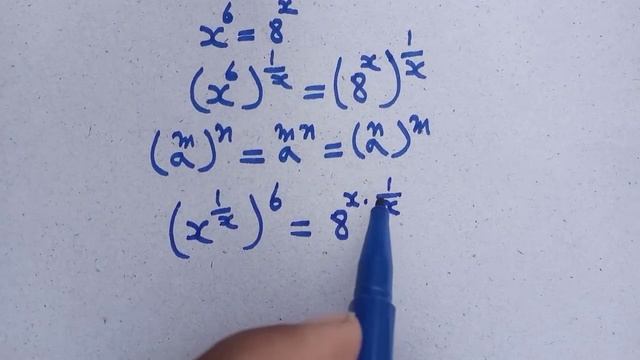 x^6 = 8^x
(x^6)^{1/x} = (8^x)^{1/x}
(a^m)^n = a^{mn} = (a^n)^m
(x^{1/x})^6 = 8^{x · 1/x}